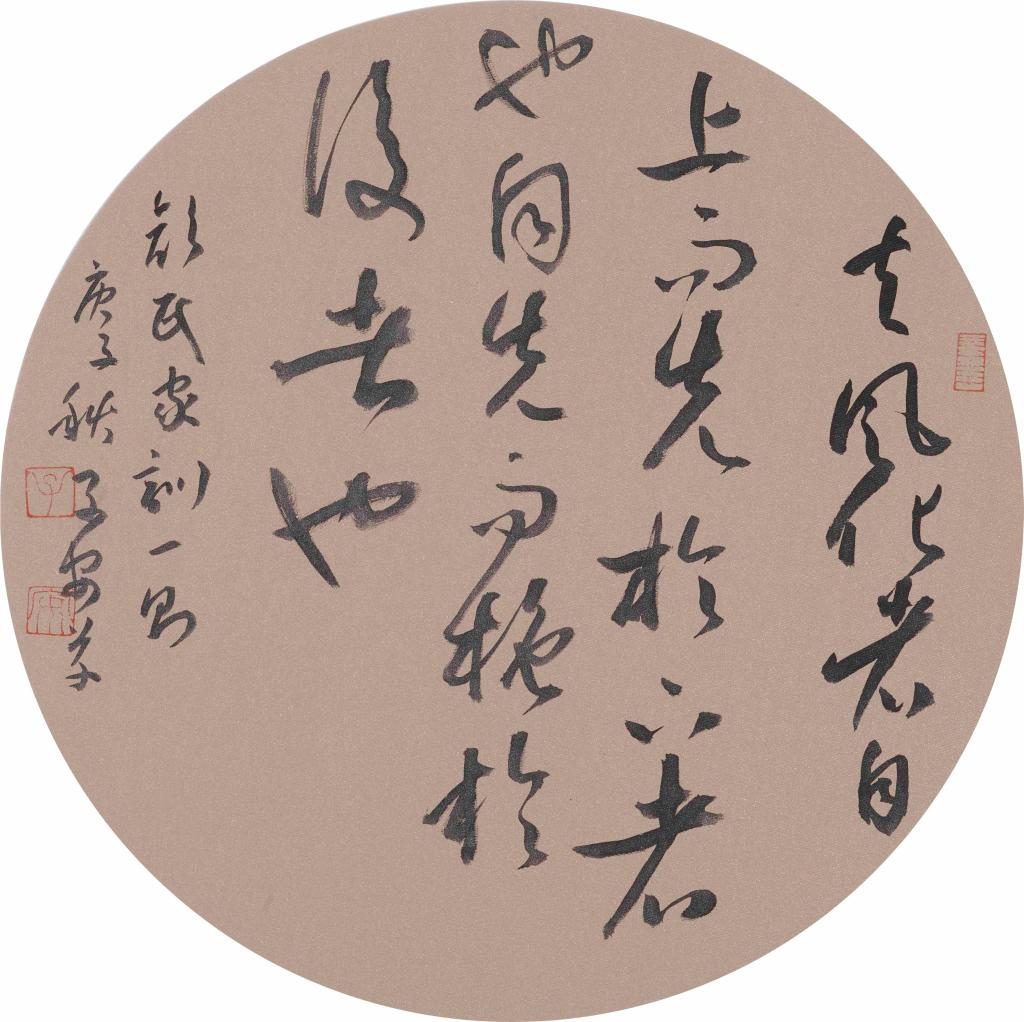 夫風化者自
上而先於下者
也自先而施於
後者也
顏氏家訓一則
庚子秋